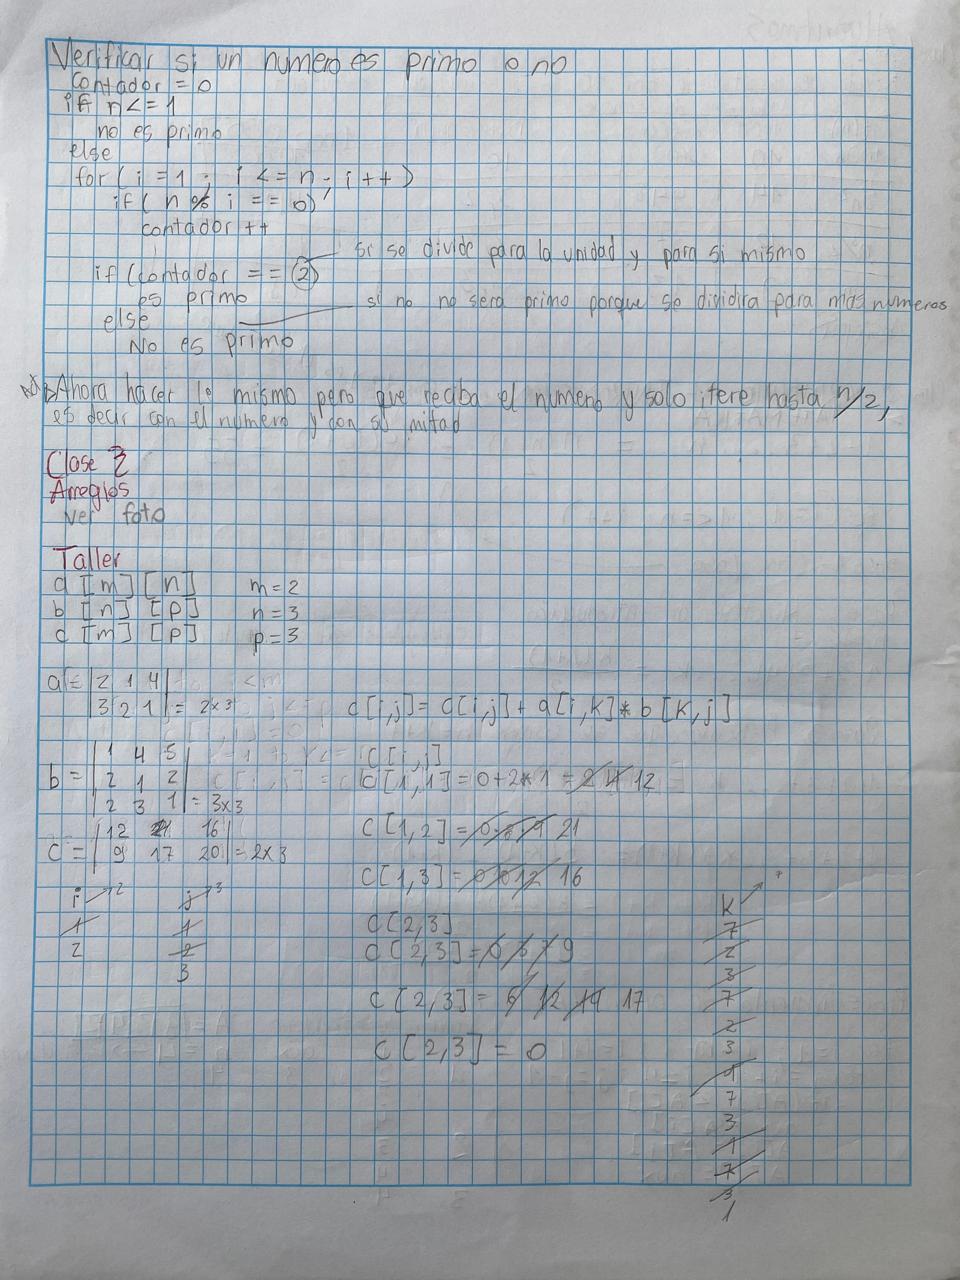 Verificar si un numero es primo o no
contador = 0
if n <= 1
no es primo
else
for ( i = 1 ; i <= n ; i ++ )
if ( n % i == 0 )
contador ++
si se divide para la unidad y para si mismo
if (contador == 2)
es primo
si no no sera primo porque se dividira para mas numeros
else
No es primo
Ahora hacer lo mismo pero que reciba el numero y solo itere hasta n/2,
es decir con el numero y con su mitad
Clase 2
Arreglos
ver foto
Taller
a [m] [n] m = 2
b [n] [p] n = 3
c [m] [p] p = 3
a = |2 1 4|
|3 2 1| = 2x3 c[i,j] = c[i,j] + a[i,k] * b [k,j]
|1 4 5| c[i,j]
b = |2 1 2| c[1,1] = 0+2*1 = 2 4 12
|2 3 1| = 3x3
|12 21 16| c[1,2] = 21
c = |9 17 20| = 2x3
c[1,3] = 0 12 16
i → 2 j → 3
k
1 1 c[2,3]
2 2 c[2,3] = 9
3
c[2,3] = 12 17
c[2,3] = 0
7
2
3
7
2
3
7
3
1
7
3
1